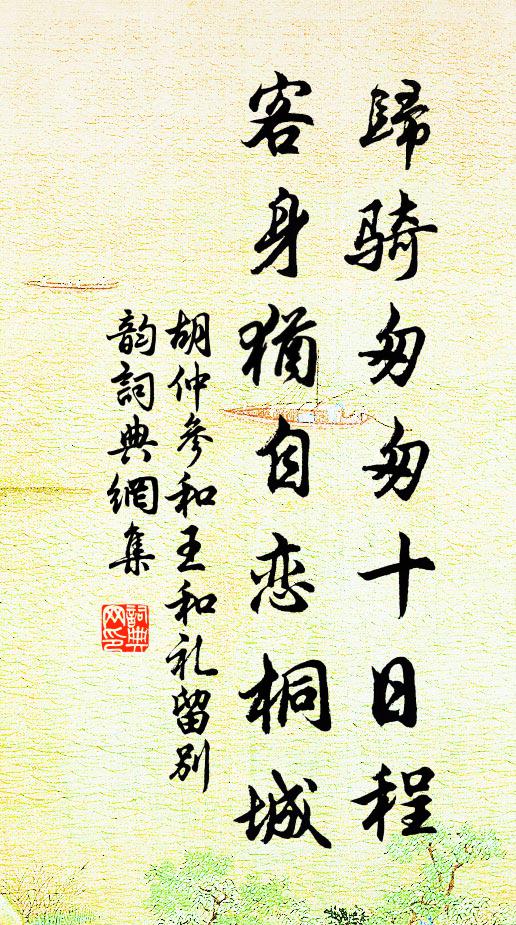 歸骑匆匆十日程
客身猶自恋桐城
胡仲參和王和礼留别
韵詞典網集
詞典
网印